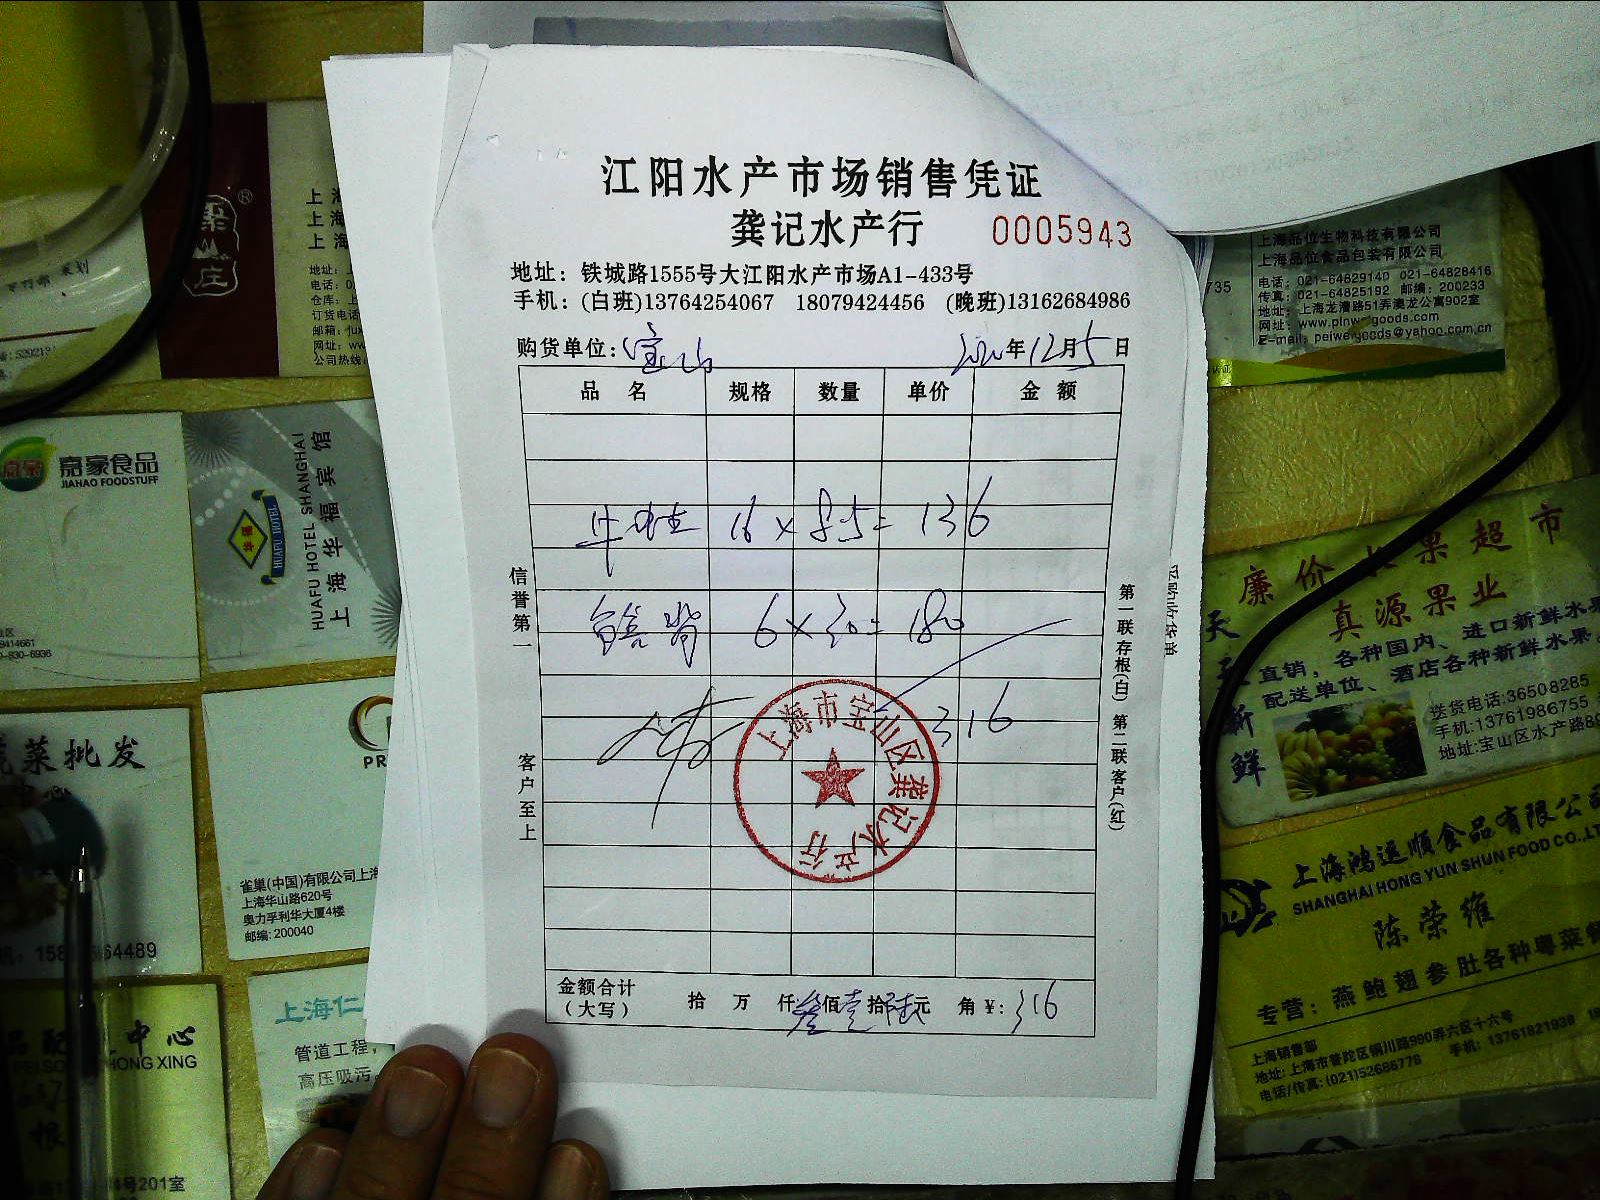 江阳水产市场销售凭证
龚记水产行 0005943
地址：铁城路1555号大江阳水产市场A1-433号
手机：(白班)13764254067 18079424456 (晚班)13162684986
购货单位：宝山 2020年12月5日
品名 规格 数量 单价 金额
牛蛙 16×8.5=136
6×30=180
316
信誉第一
客户至上
第一联存根(白) 第二联客户(红)
上海市宝山区龚记水产行
金额合计(大写) 拾 万 仟叁佰壹拾陆元 角 ¥：316
上海品位生物科技有限公司
上海品位食品包装有限公司
电话：021-64829140 021-64828416
传真：021-64825192 邮编：200233
地址：上海龙漕路51弄澳龙公寓902室
网址：www.pinweigoods.com
E-mail：peiweigoods@yahoo.com.cn
嘉豪食品
JIAHAO FOODSTUFF
华福
HUAFU HOTEL
HUAFU HOTEL SHANGHAI
上海华福宾馆
菜批发
雀巢(中国)有限公司上海
上海华山路620号
奥力孚利华大厦4楼
邮编：200040
上海仁
管道工程，
高压吸污
中心
HONG XING
4号201室
廉价水果超市
真源果业
天天新鲜
直销，各种国内、进口新鲜水果
配送单位、酒店各种新鲜水果
送货电话:36508285
手机:13761986755
地址:宝山区水产路
上海鸿运顺食品有限公司
SHANGHAI HONG YUN SHUN FOOD CO.,LT
陈荣维
专营：燕鲍翅参肚各种粤菜
上海销售部
地址:上海市普陀区铜川路990弄六区十六号
电话/传真:(021)52686776 手机：13761821938